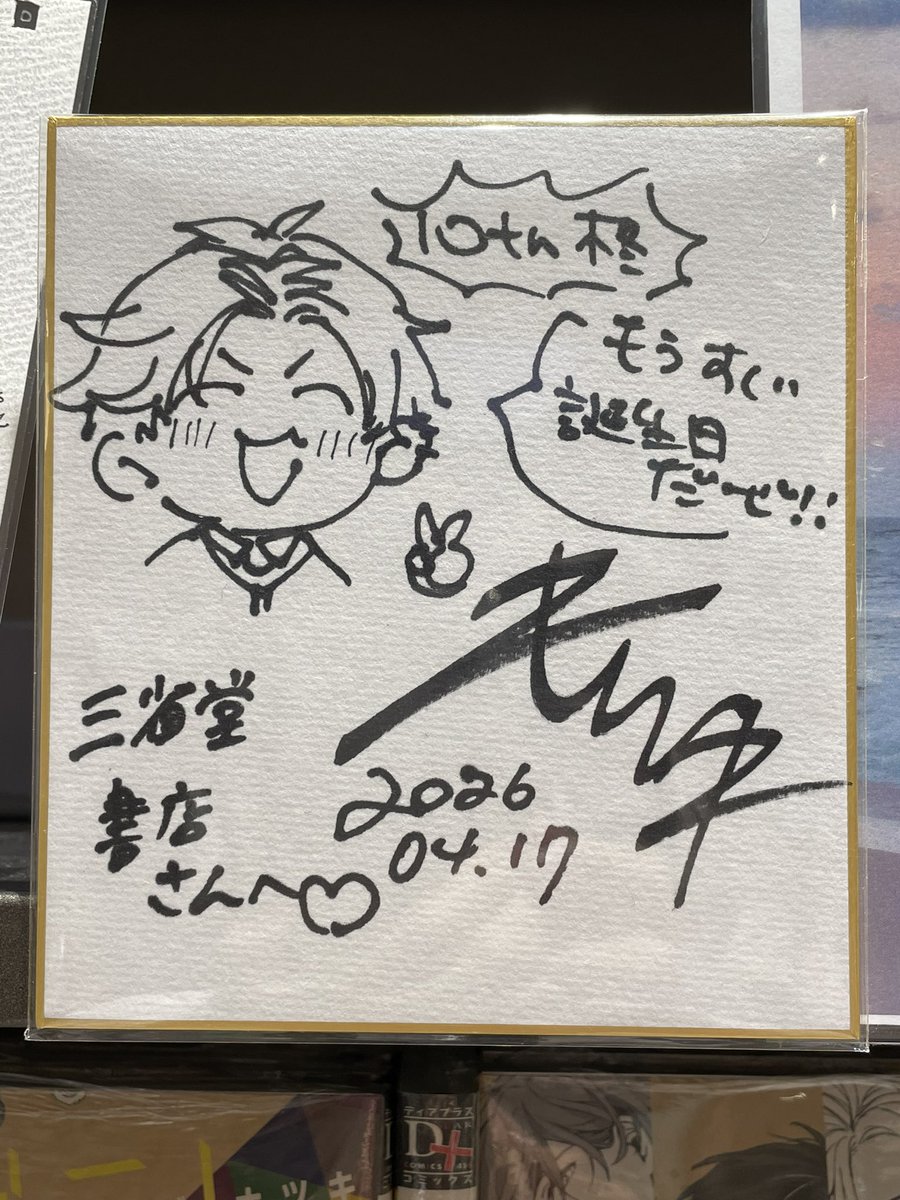 10th 柊
もうすぐ
誕生日
だーぜ!!
三省堂
書店
さんへ♡
2026
04.17
ディアプラス
D+
COMICS
コミックス
ッキ